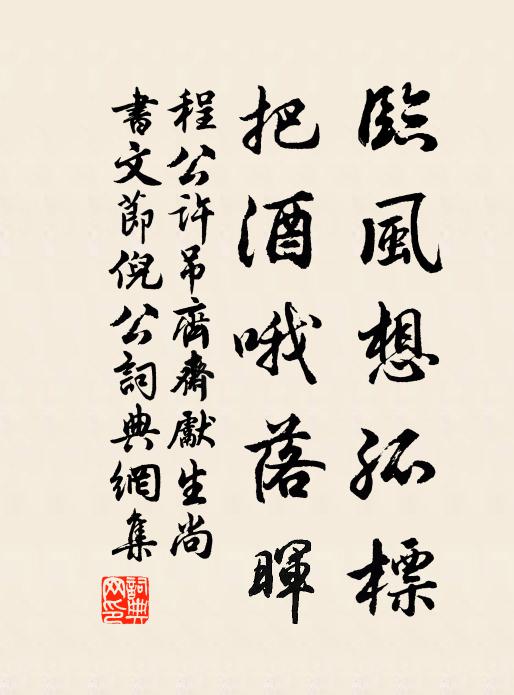 臨風想孤標
把酒哦落暉
程公許吊齊齋獻生尚
書文節倪公詞典網集
詞典網印